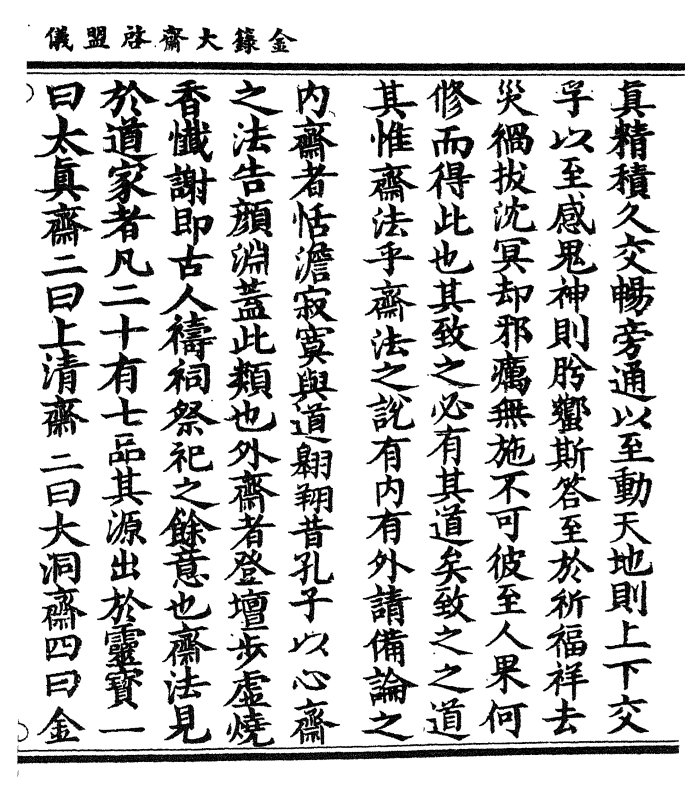 金籙大齋啓盟儀
真精積久交暢旁通以至動天地則上下交
孚以至感鬼神則肹蠁斯答至於祈福祥去
災禍拔沈冥却邪癘無施不可彼至人果何
修而得此也其致之必有其道矣致之之道
其惟齋法乎齋法之說有內有外請備論之
內齋者恬澹寂寞與道翱翔昔孔子以心齋
之法告顏淵蓋此類也外齋者登壇步虛燒
香懺謝即古人禱祠祭祀之餘意也齋法見
於道家者凡二十有七品其源出於靈寶一
曰太真齋二曰上清齋二曰大洞齋四曰金